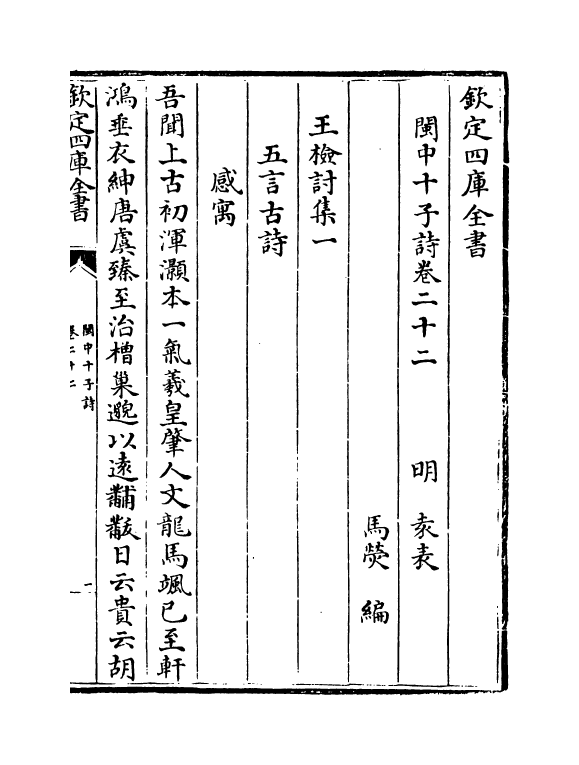 欽定四庫全書
閩中十子詩卷二十二　明　袁表
馬熒　編
王檢討集一
五言古詩
感寓
吾聞上古初渾灝本一氣羲皇肇人文龍馬颯已至軒
鴻垂衣紳唐虞臻至治橧巢邈以遠黼黻日云貴云胡
欽定四庫全書
閩中十子詩
卷二十二
一